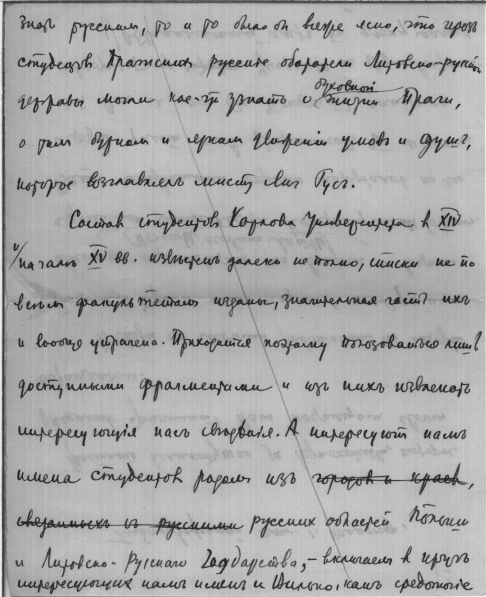 знать русскими, то и то было бы всегда ясно, что через
студентов Пражских русские обыватели Литовско-русской
державы могли кое-что узнать о духовной жизни Праги,
о том бурном и ярком движении умов и душ,
которое возглавлялъ мистр Ян Гусъ.
Составъ студентовъ Карлова Университета в XIV
и/ началѣ XV вв. извѣстенъ далеко не полно, списки не по
всѣмъ факультетамъ изданы, значительная часть ихъ
и вообще утрачена. Приходится поэтому пользоваться лишь
доступными фрагментами и изъ нихъ извлекать
интересующія насъ свѣдѣнія. А интересуютъ насъ
имена студентовъ родомъ изъ городовъ и краевъ,
связанныхъ съ русскими русскихъ областей Польши
и Литовско-Русскаго Государства, – включаемъ в кругъ
интересующихъ насъ именъ и Вильно, какъ средоточіе